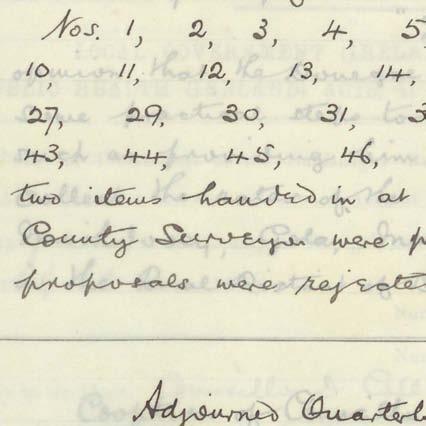 Nos. 1, 2, 3, 4, 5
10, 11, 12, 13, 14,
27, 29, 30, 31, 3
43, 44, 45, 46,
two items handed in at
County Surveyor were p
proposals were rejecte
Adjourned Quarterl